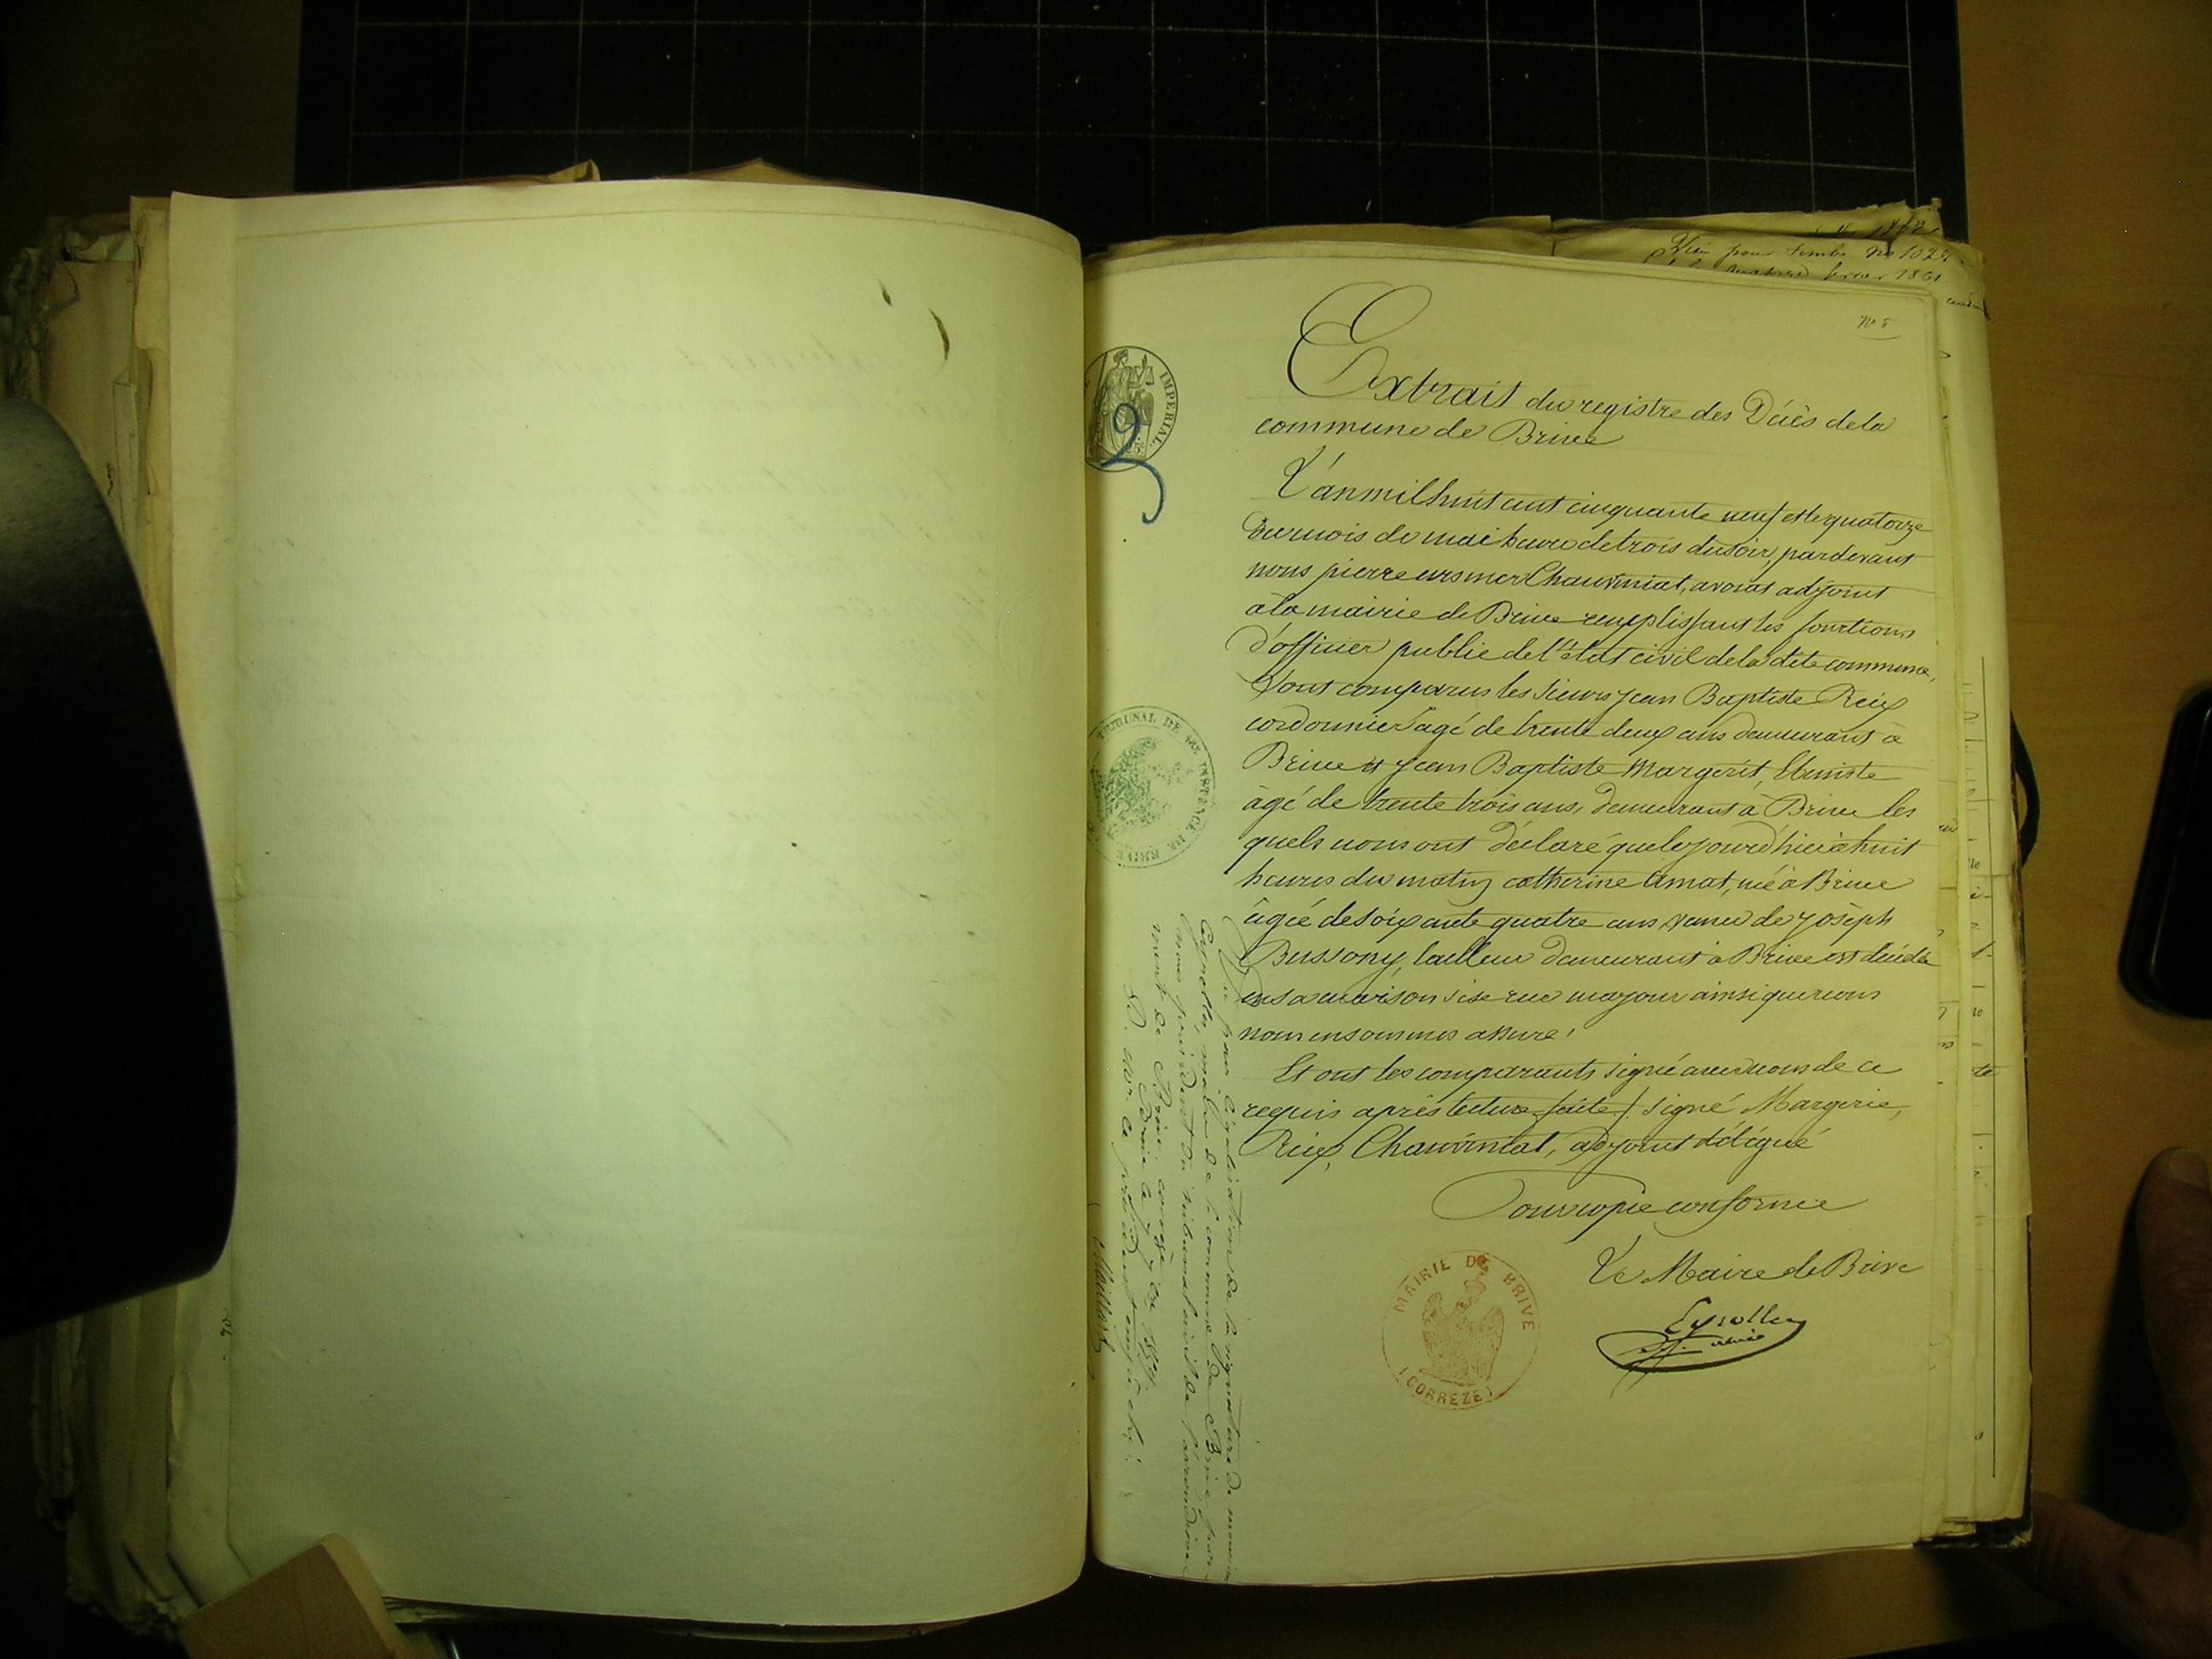 Vu pour timbre No 102
fevrier 1861
No 5
Extrait du registre des Décès de la
commune de Brive
L'an mil huit cent cinquante neuf et le quatorze
du mois de mai heure de trois du soir, pardevant
nous pierre ursmer Chauviniat, avocat adjoint
à la mairie de Brive remplissant les fonctions
d'officier public de l'état civil de la dite commune,
Sont comparus les sieurs jean Baptiste Reix
cordonnier agé de trente deux ans demeurant à
Brive et jean Baptiste Margerit, Ebeniste
âgé de trente trois ans, demeurant à Brive les
quels nous ont déclaré que le jour d'hier à huit
heures du matin catherine Amat, née à Brive
âgée de soixante quatre ans, veuve de joseph
Bussony, tailleur demeurant à Brive est décédée
en sa maison sise rue majour ainsi que nous
nous en sommes assuré!
Et ont les comparants signé avec nous de ce
requis après lecture faite. / signé Margerie,
Reix, Chauviniat, adjoint délégué
Pour copie conforme
Le Maire de Brive
Eyrolles
MAIRIE DE BRIVE
(CORREZE)
IMPERIAL
TRIBUNAL DE 1RE INSTANCE DE BRIVE
Vu pour légalisation de la signature de monsieur
Eyrolles, maire de la commune de Brive, par
nous président du tribunal civil de l'arrondisse-
ment de Brive corrèze
Brive le 1859.
P. mr le président empêché